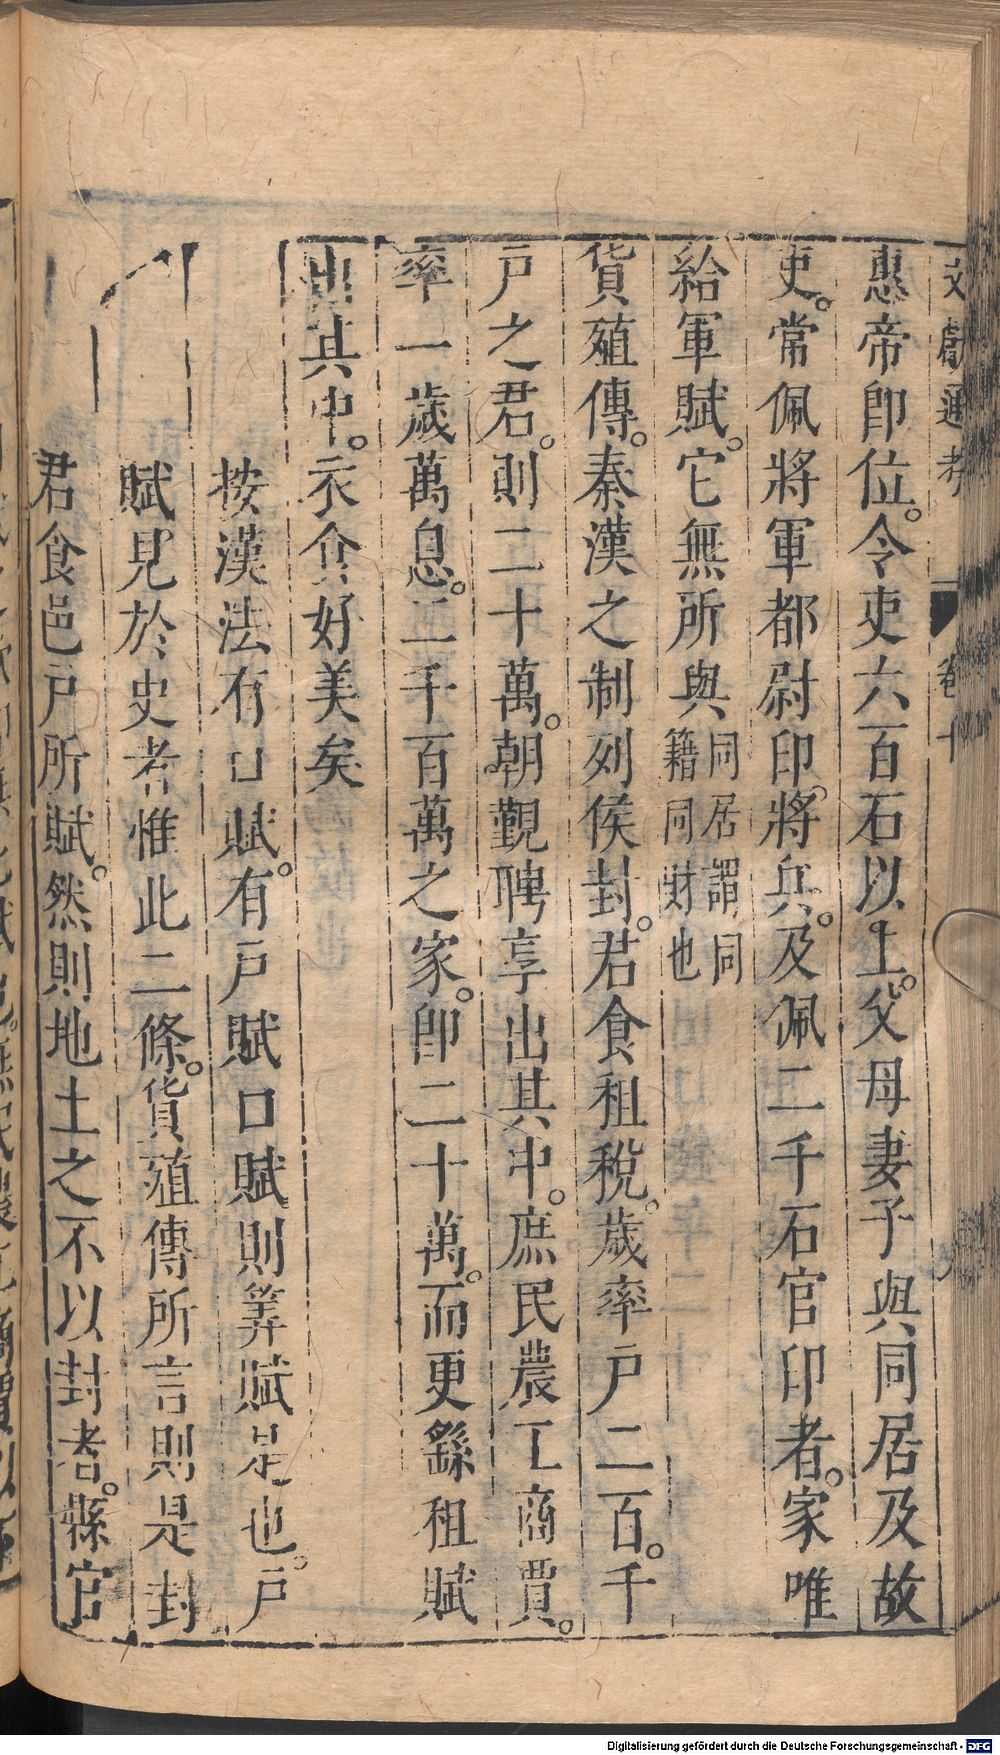 文獻通考 卷十
惠帝卽位。令吏六百石以上。父母妻子與同居及故
吏。常佩將軍都尉印。將兵。及佩二千石官印者。家唯
給軍賦。它無所與同居謂同籍同財也
貨殖傳。秦漢之制列侯封。君食租稅。歲率戶二百。千
戶之君。則二十萬。朝覲聘享出其中。庶民農工商賈。
率一歲萬息。二千百萬之家。卽二十萬。而更繇租賦
出其中。衣食好美矣
按漢法有口賦。有戶賦口賦則筭賦是也。戶
賦見於史者惟此二條。貨殖傳所言則是封
君食邑戶所賦。然則地土之不以封者。縣官
Digitalisierung gefördert durch die Deutsche Forschungsgemeinschaft - DFG